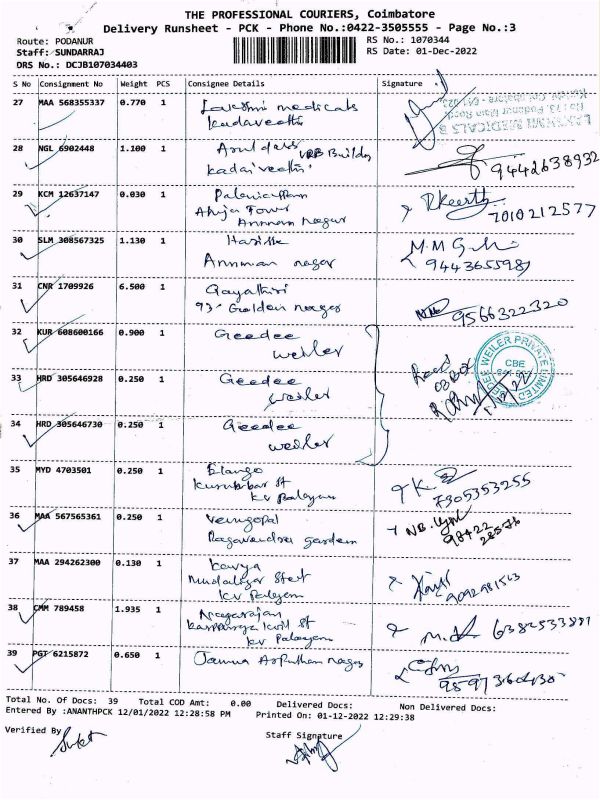 THE PROFESSIONAL COURIERS, Coimbatore
Delivery Runsheet - PCK - Phone No.:0422-3505555 - Page No.:3
Route: PODANUR
Staff: SUNDARRAJ
DRS No.: DCJB107034403
RS No.: 1070344
RS Date: 01-Dec-2022
S No Consignment No Weight PCS Consignee Details Signature
27 MAA 568355337 0.770 1 Lakshmi medicals
Kadaiveethi
LAKSHMI MEDICALS &
28 NGL 6902448 1.100 1 Arul VRB Building
Kadaiveethi
9442638932
29 KCM 12637147 0.030 1
Tower
Annman nagar
7010212577
30 SLM 308567325 1.130 1
Annman nagar
9443655981
31 CNR 1709926 6.500 1 Gayathiri
93- Golden nagar
9566322320
32 KUR 608600166 0.900 1 Geedee
weiler
33 HRD 305646928 0.250 1 Geedee
weiler
Recd
03 Box
WEILER PRIVATE LIMITED
CBE
34 HRD 305646730 0.250 1 Geedee
weiler
35 MYD 4703501 0.250 1 Elango
St
KV Palayam
7305353255
36 MAA 567565361 0.250 1 Venugopal
Ragavendra garden
98422
37 MAA 294262300 0.130 1 Kavya
Mudaliyar Street
KV Palayam
38 CMM 789458 1.935 1 Nagarajan
Kovil St
KV Palayam
6382533881
39 PGT 6215872 0.650 1 nagar
Total No. Of Docs: 39 Total COD Amt: 0.00 Delivered Docs: Non Delivered Docs:
Entered By :ANANTHPCK 12/01/2022 12:28:58 PM Printed On: 01-12-2022 12:29:38
Verified By
Staff Signature